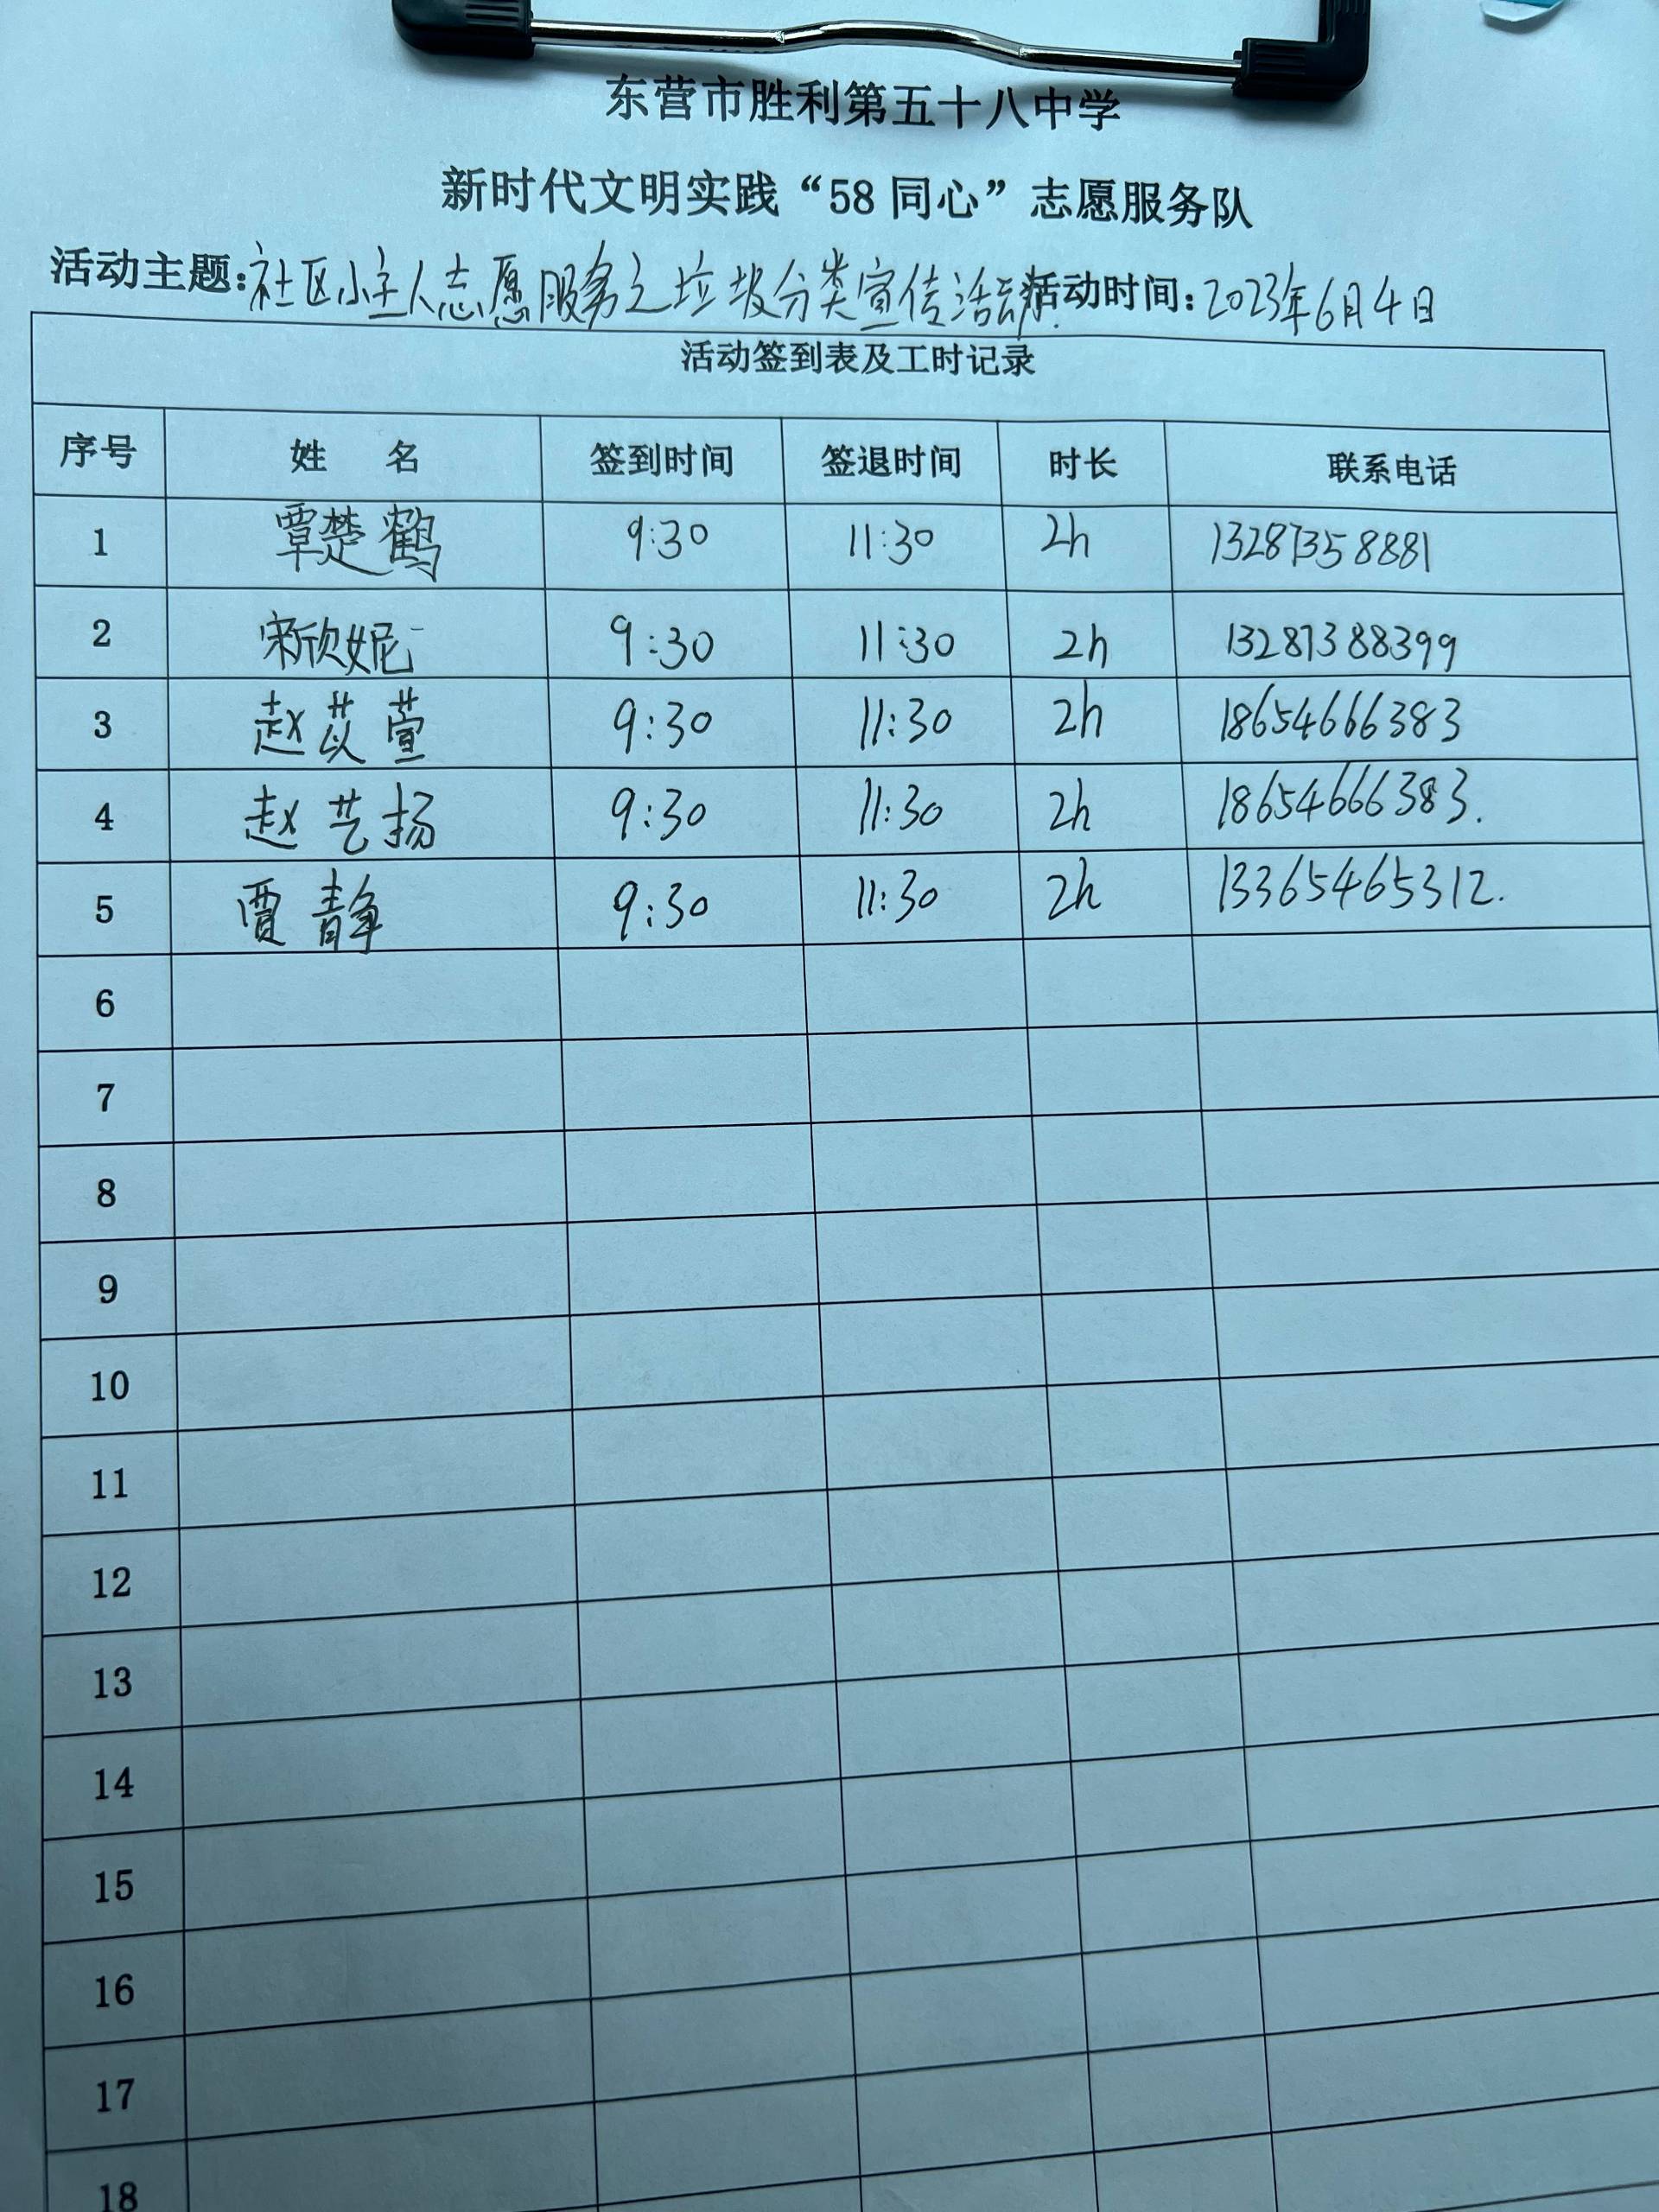 东营市胜利第五十八中学
新时代文明实践“58 同心”志愿服务队
活动主题:社区小主人志愿服务之垃圾分类宣传活动. 活动时间:2023年6月4日
活动签到表及工时记录
序号 姓 名 签到时间 签退时间 时长 联系电话
1 覃楚鹤 9:30 11:30 2h 13287358881
2 宋欣妮 9:30 11:30 2h 13287388399
3 赵苡萱 9:30 11:30 2h 18654666383
4 赵艺扬 9:30 11:30 2h 18654666383.
5 贾静 9:30 11:30 2h 13365465312.
6
7
8
9
10
11
12
13
14
15
16
17
18